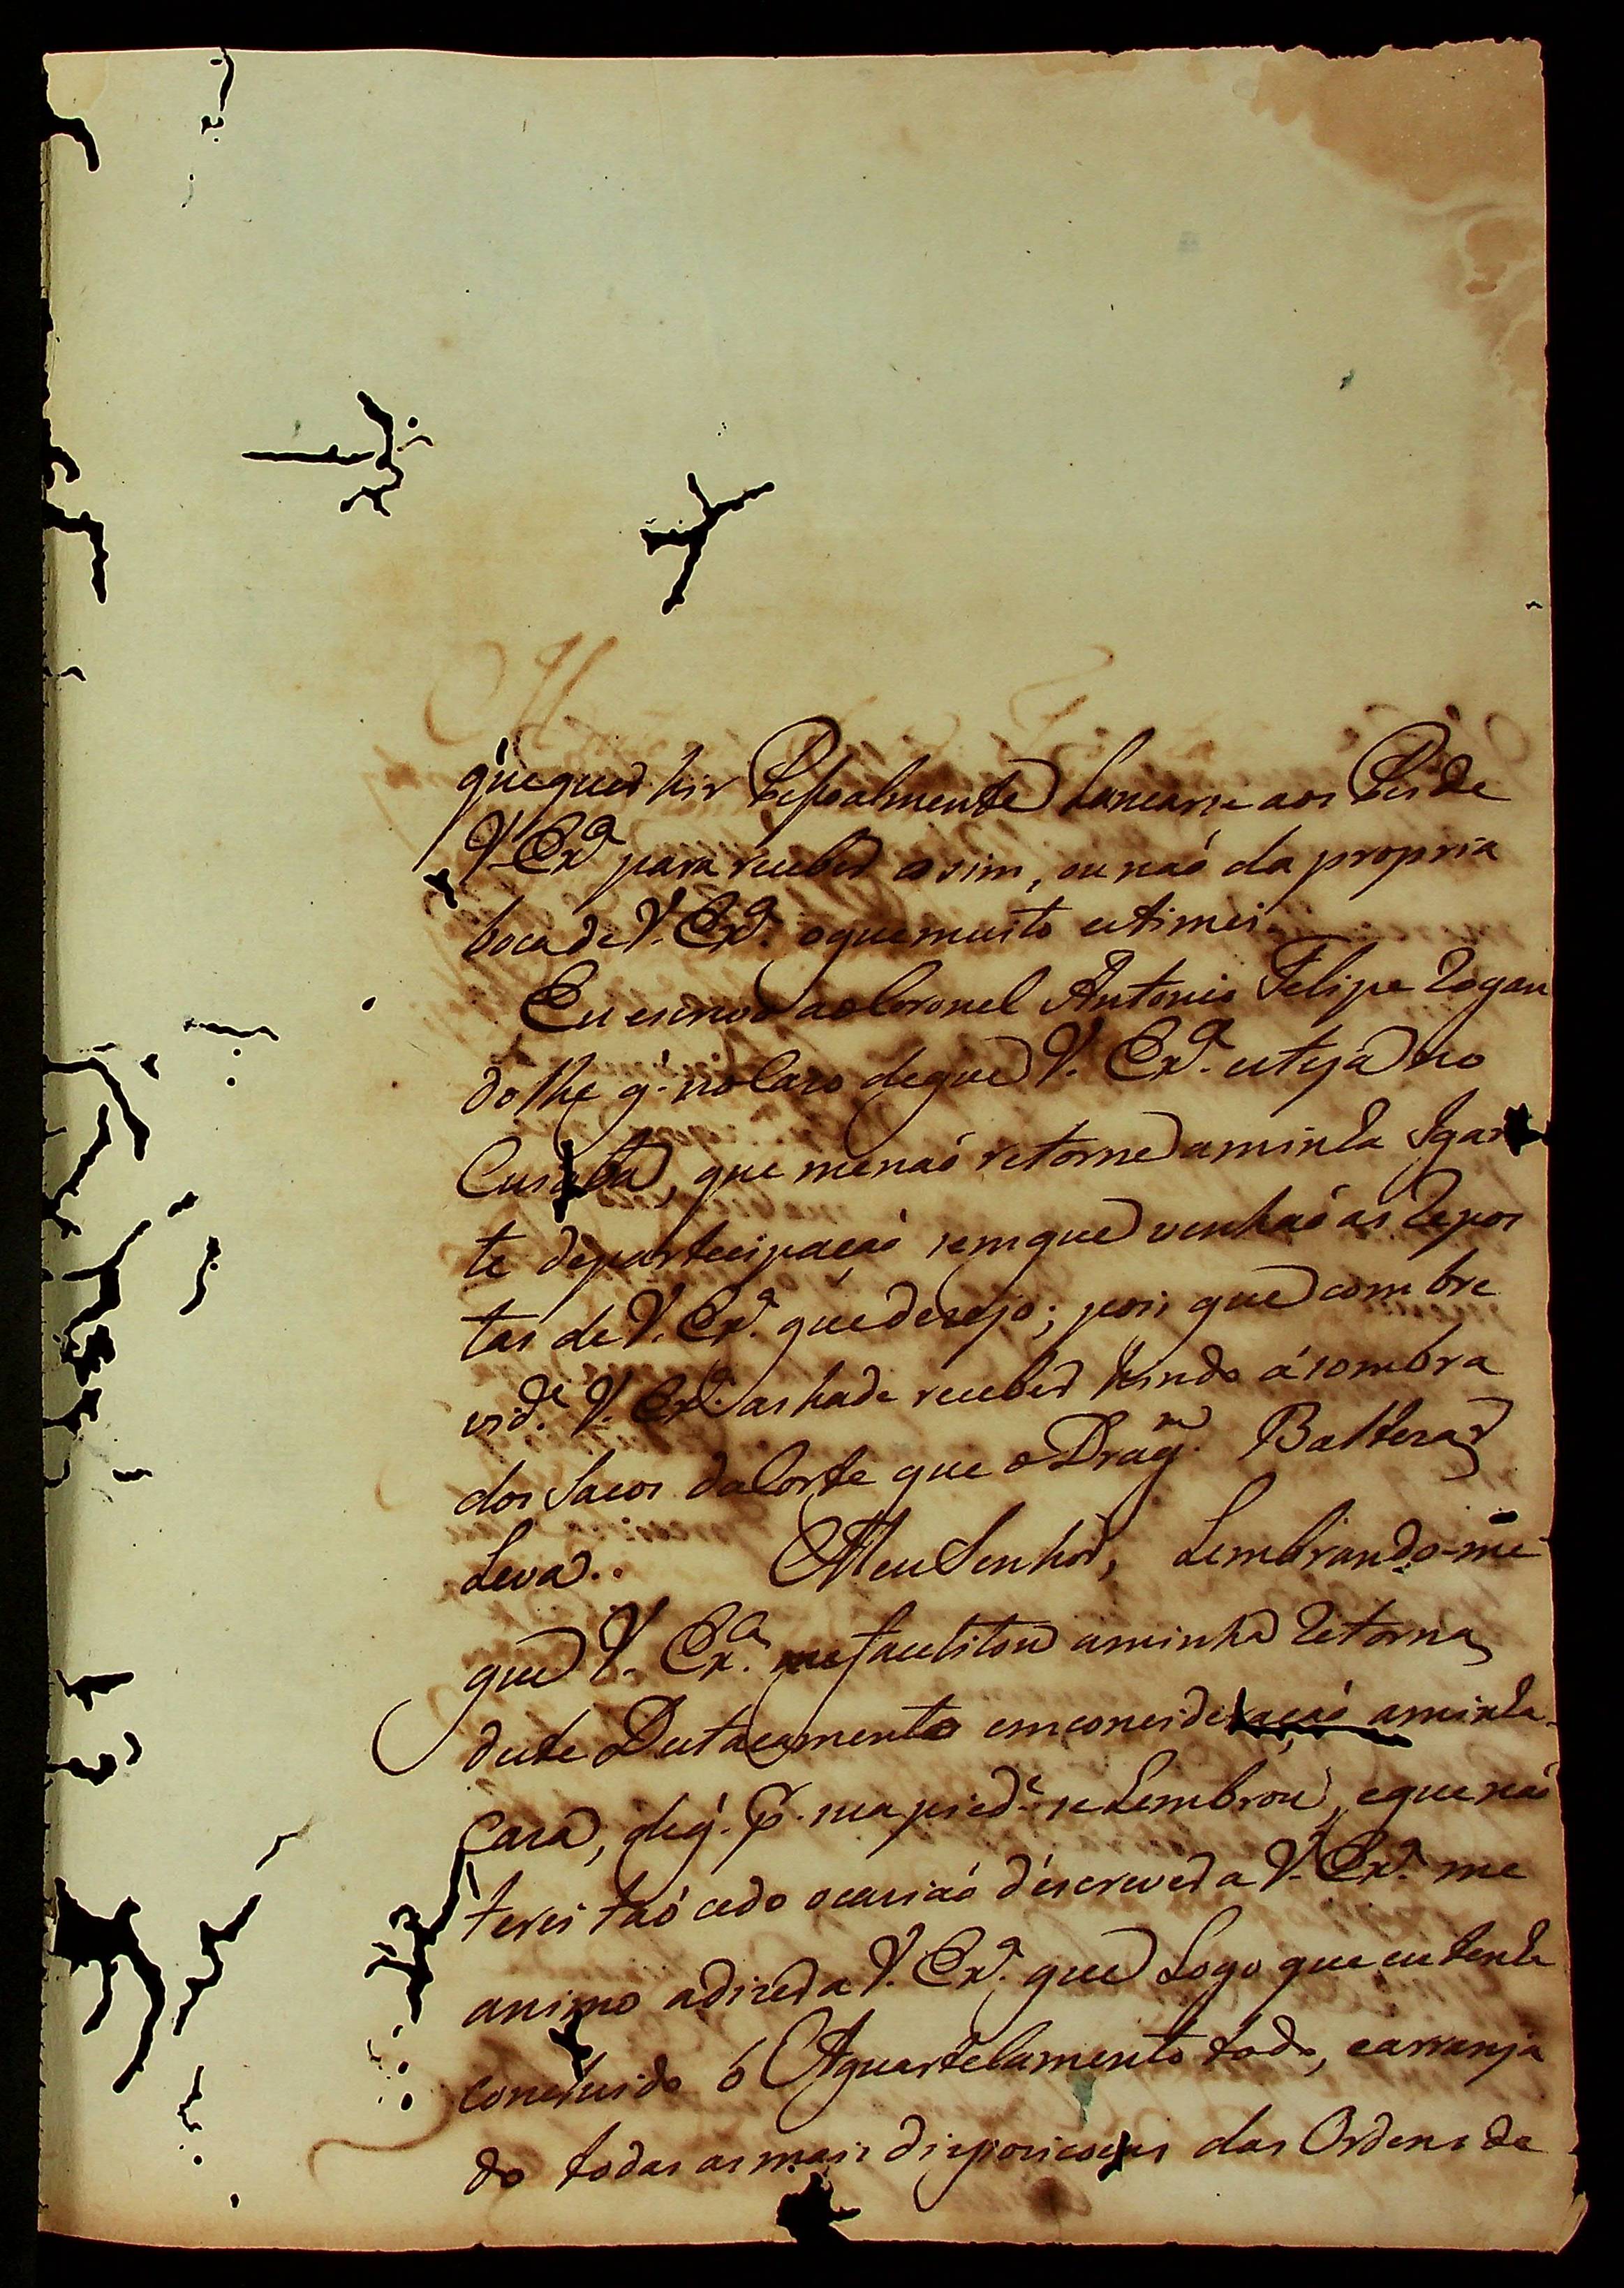 que quer hir Pessoalmente Lancarse aos Pes de
V. Exª. para receber o sim, ou naõ da propria
boca de V. Exª. o que muito estimei.
Eu escrevo ao Coronel Antonio Felipe Rogan
dolhe q̃. no Cazo de que V. Exª. esteja no
Cuiabá, que me naõ retorne a minha Igari
te departecipaçaõ sem que venhaõ as Repos
tas de V. Exª. que desejo; pois que com bre
vid.ᵉ V. Exª. as hade receber hindo á sombra
dos Sacos da Corte que o Drag.ᵐ Baltezar
Leva. Meu Senhor, Lembrando-me
que V. Exª. me facelitou a minha Retorna
deste Destacamento em concideraçaõ a minha
Caza, deq̃. p. sua pied.ᵉ se Lembrou, e que naõ
terei taõ cedo ocasiaõ d'escrever a V. Exª. me
animo a dizer a V. Exª. que Logo que eu tenha
concluido ó Aquartelamento todo, earranja
do todas as mais disposicoens das Ordens de